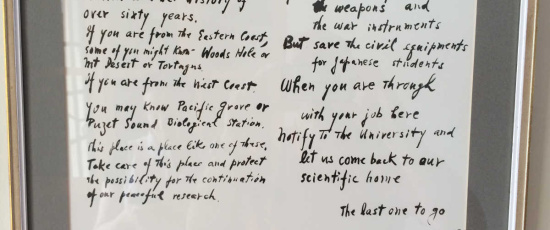 over sixty years.
If you are from the Eastern Coast,
some of you might Know Woods Hole or
Mt Desert or Tortugas.
If you are from the West Coast,
You may know Pacific Grove or
Puget Sound Biological Station.
This place is a place like one of these.
Take care of this place and protect
the possibility for the continuation
of our peaceful research.
the weapons and
the war instruments
But save the civil equipments
for Japanese students
When you are through
with your job here
Notify To The University and
let us come back to our
scientific home
The last one to go